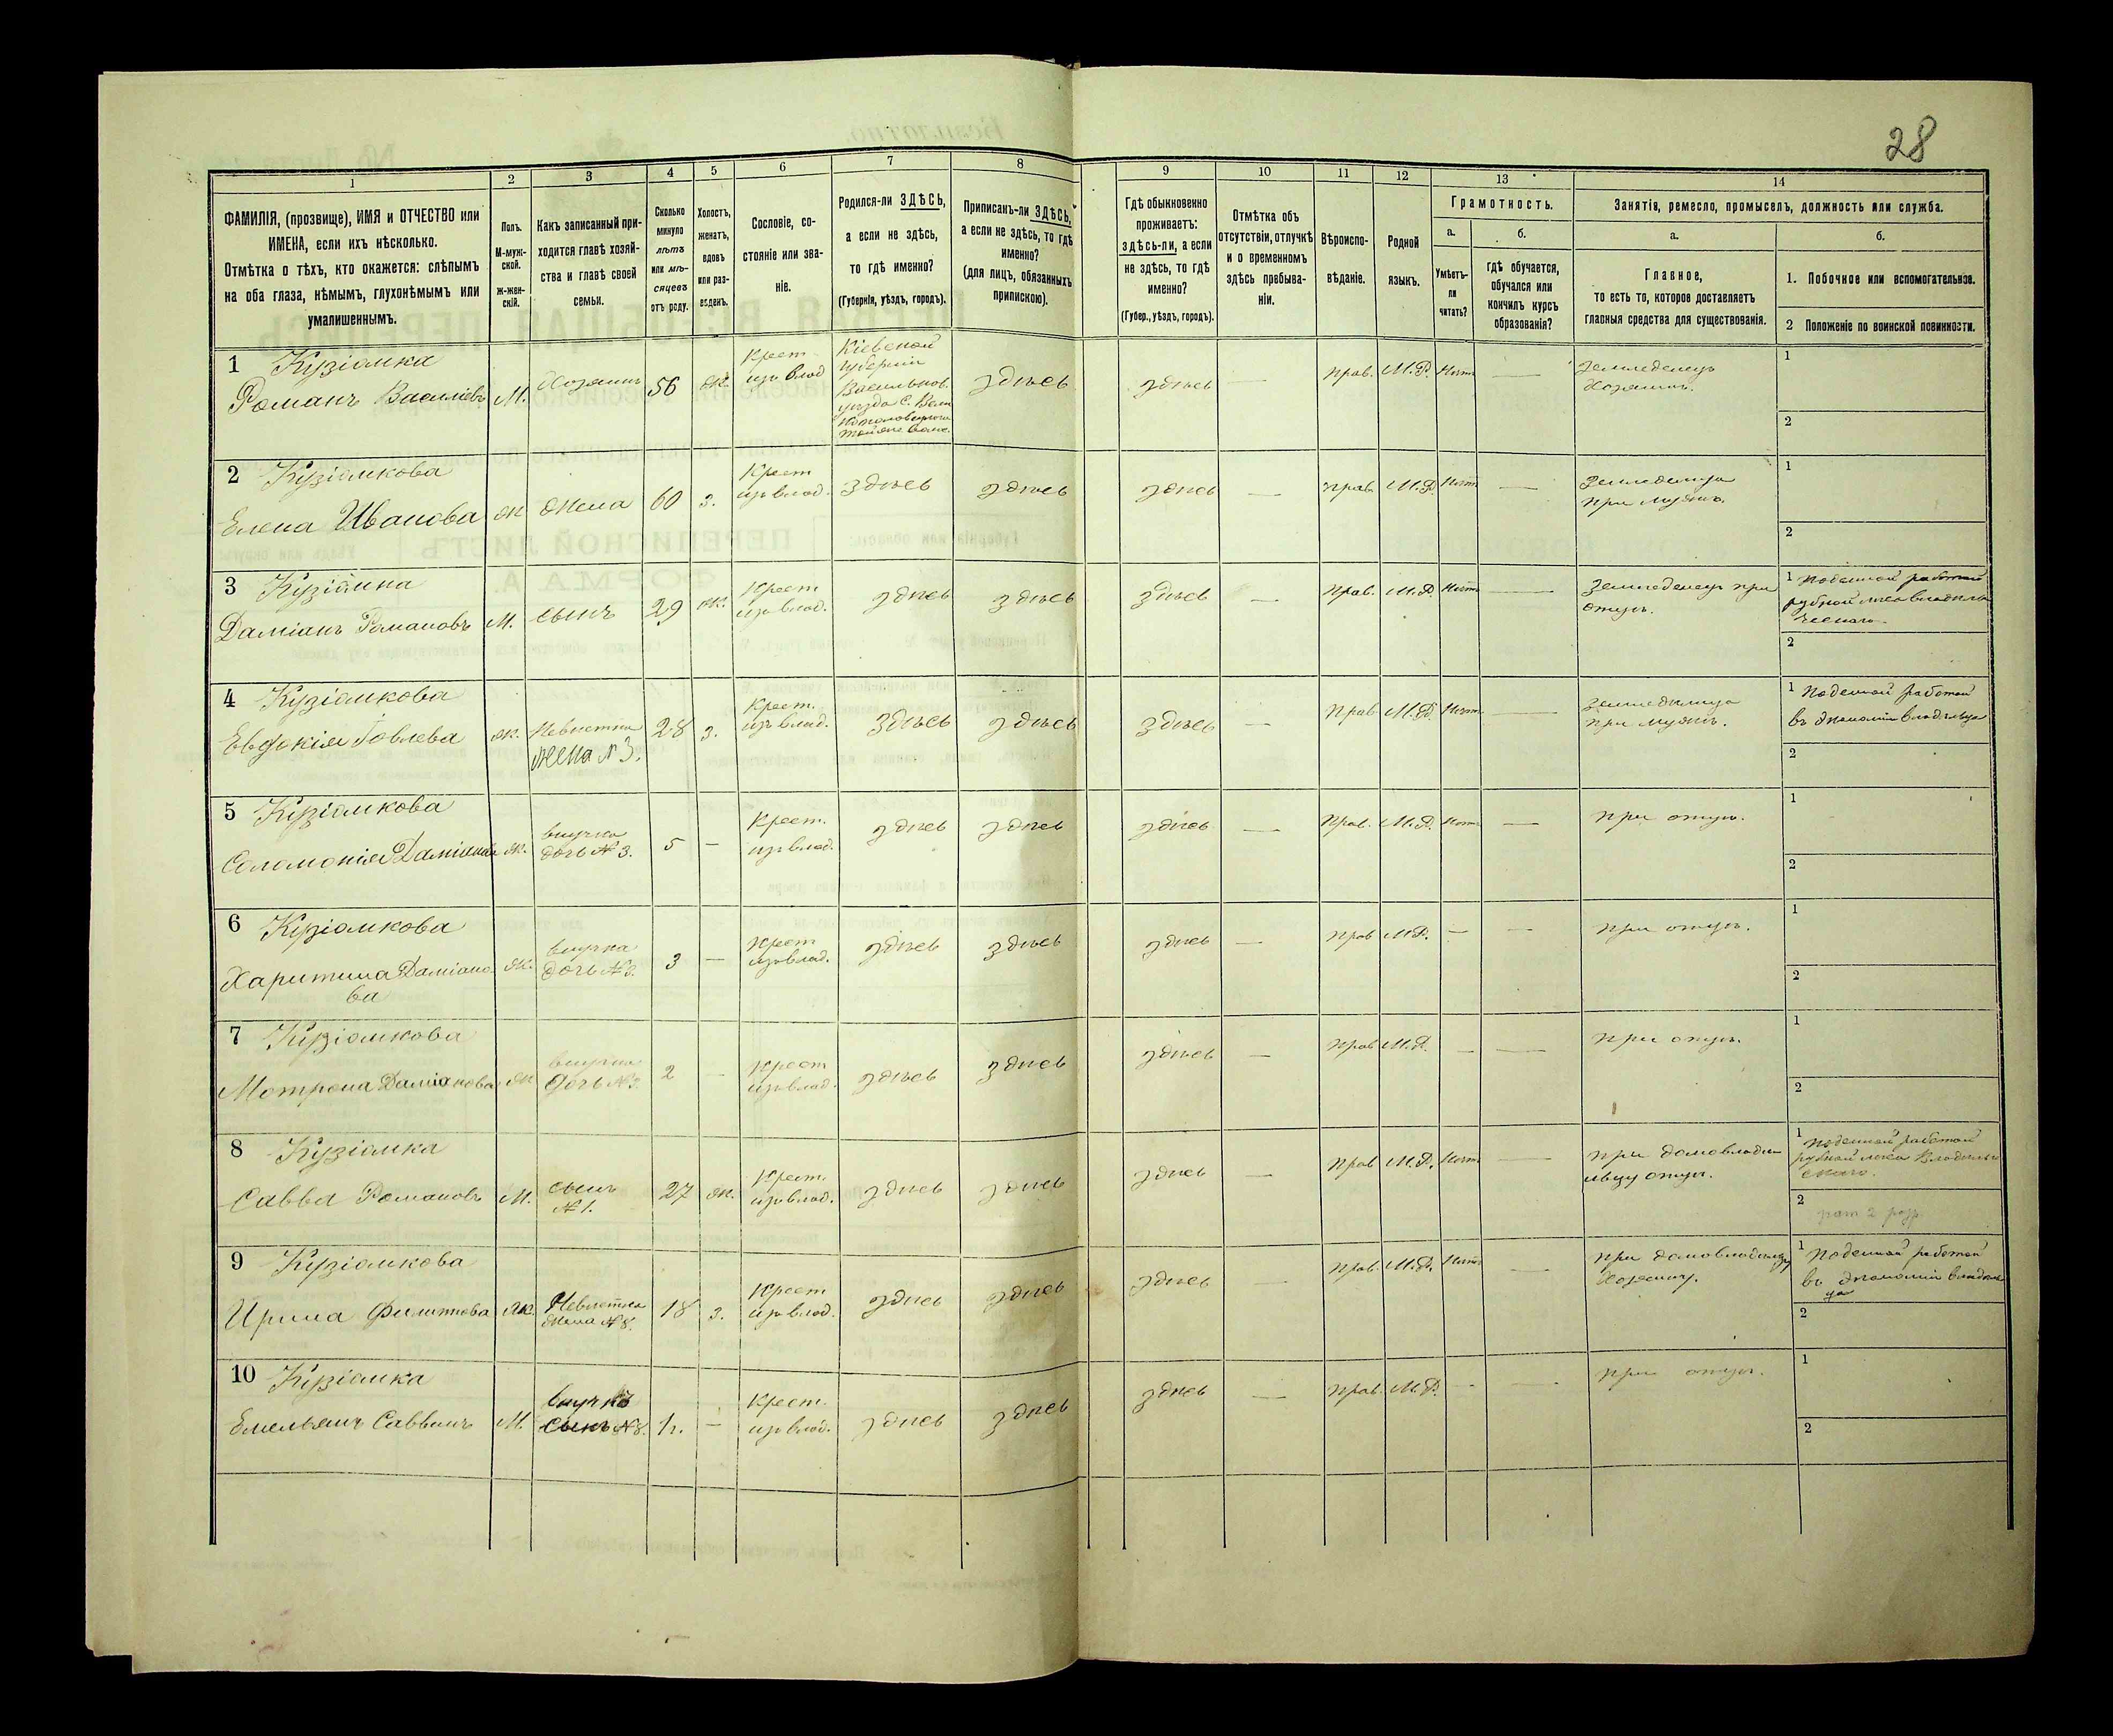 28
1
2
3
4
5
6
7
8
9
10
11
12
13
14
ФАМИЛІЯ, (прозвище), ИМЯ и ОТЧЕСТВО или
ИМЕНА, если ихъ нѣсколько.
Отмѣтка о тѣхъ, кто окажется: слѣпымъ
на оба глаза, нѣмымъ, глухонѣмымъ или
умалишеннымъ.
Полъ.
М-муж-
ской.
Ж-жен-
скій.
Какъ записанный при-
ходится главѣ хозяй-
ства и главѣ своей
семьи.
Сколько
минуло
лѣтъ
или мѣ-
сяцевъ
отъ роду.
Холостъ,
женатъ,
вдовъ
или раз-
веденъ.
Сословіе, со-
стояніе или зва-
ніе.
Родился-ли ЗДѢСЬ,
а если не здѣсь,
то гдѣ именно?
(Губернія, уѣздъ, городъ).
Приписанъ-ли ЗДѢСЬ,
а если не здѣсь, то гдѣ
именно?
(для лицъ, обязанныхъ
припискою).
Гдѣ обыкновенно
проживаетъ:
здѣсь-ли, а если
не здѣсь, то гдѣ
именно?
(Губер., уѣздъ, городъ).
Отмѣтка объ
отсутствіи, отлучкѣ
и о временномъ
здѣсь пребыва-
ніи.
Вѣроиспо-
вѣданіе.
Родной
языкъ.
Грамотность.
а.
Умѣетъ-
ли
читать?
б.
гдѣ обучается,
обучался или
кончилъ курсъ
образованія?
Занятія, ремесло, промыселъ, должность или служба.
а.
Главное,
то есть то, которое доставляетъ
главныя средства для существованія.
б.
1. Побочное или вспомогательное.
2 Положеніе по воинской повинности.
1 Кузіамка
Романъ Васильевъ М. Хозяинъ 56 ж.
Крест.
изъ влад
Кіевской
губерніи
Васильков.
уѣзда С.
здѣсь здѣсь — прав. М.Р. Нѣтъ —
Земледелецъ
Хозяинъ.
1
2
2 Кузіамкова
Елена Иванова ж жена 60 з.
Крест
изъ влад.
здѣсь здѣсь здѣсь — прав. М.Р. Нѣтъ —
Земледелица
при мужѣ.
1
2
3 Кузіамка
Даміанъ Романовъ М. сынъ 29 ж.
Крест
изъ влад.
здѣсь здѣсь здѣсь — прав. М.Р. Нѣтъ —
Земледелецъ при
отцѣ.
1 Поденной работой
рубкой лѣса владель
ческаго.
2
4 Кузіамкова
Евдокія Іовлева ж. Невѣстка
жена № 3. 28 з.
Крест.
изъ влад.
здѣсь здѣсь здѣсь — прав М.Р. Нѣтъ —
Земледелица
при мужѣ.
1 Поденной работой
въ экономіи владельца
2
5 Кузіамкова
Соломонія Даміанова ж.
внучка
дочь № 3. 5 —
Крест.
изъ влад.
здѣсь здѣсь здѣсь — прав. М.Р. Нѣтъ — при отцѣ.
1
2
6 Кузіамкова
Харитина Даміано
ва ж.
внучка
дочь № 3. 3 —
Крест
изъ влад.
здѣсь здѣсь здѣсь — прав М.Р. — — при отцѣ.
1
2
7 Кузіамкова
Мотрона Даміанова ж
внучка
дочь № 3. 2 —
Крест
изъ влад.
здѣсь здѣсь здѣсь — прав М.Р. — — при отцѣ.
1
2
8 Кузіамка
Савва Романовъ М.
сынъ
№ 1. 27 ж.
Крест.
изъ влад.
здѣсь здѣсь здѣсь — прав М.Р. Нѣтъ —
при домовладѣ
льцу отцѣ.
1 Поденной работой
рубкой лѣса владельче
скаго.
2
рат 2 разр.
9 Кузіамкова
Ирина Филиппова ж.
Невѣстка
жена № 8. 18 з.
Крест
изъ влад.
здѣсь здѣсь здѣсь — прав. М.Р. Нѣтъ —
при домовладельцу
Хозяину.
1 Поденной работой
въ экономіи владель
ца
2
10 Кузіамка
Емельянъ Саввинъ М.
внучкъ
сынъ № 8. —
Крест.
изъ влад.
здѣсь здѣсь здѣсь — прав. М.Р. — — при отцѣ.
1
2